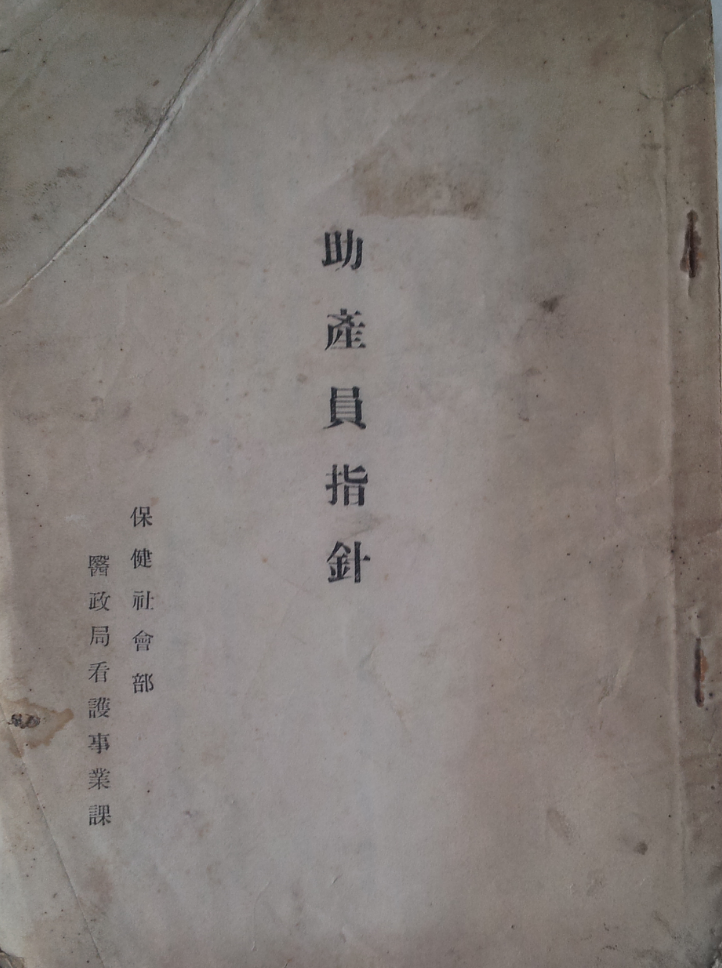 助產員指針
保健社會部
醫政局看護事業課